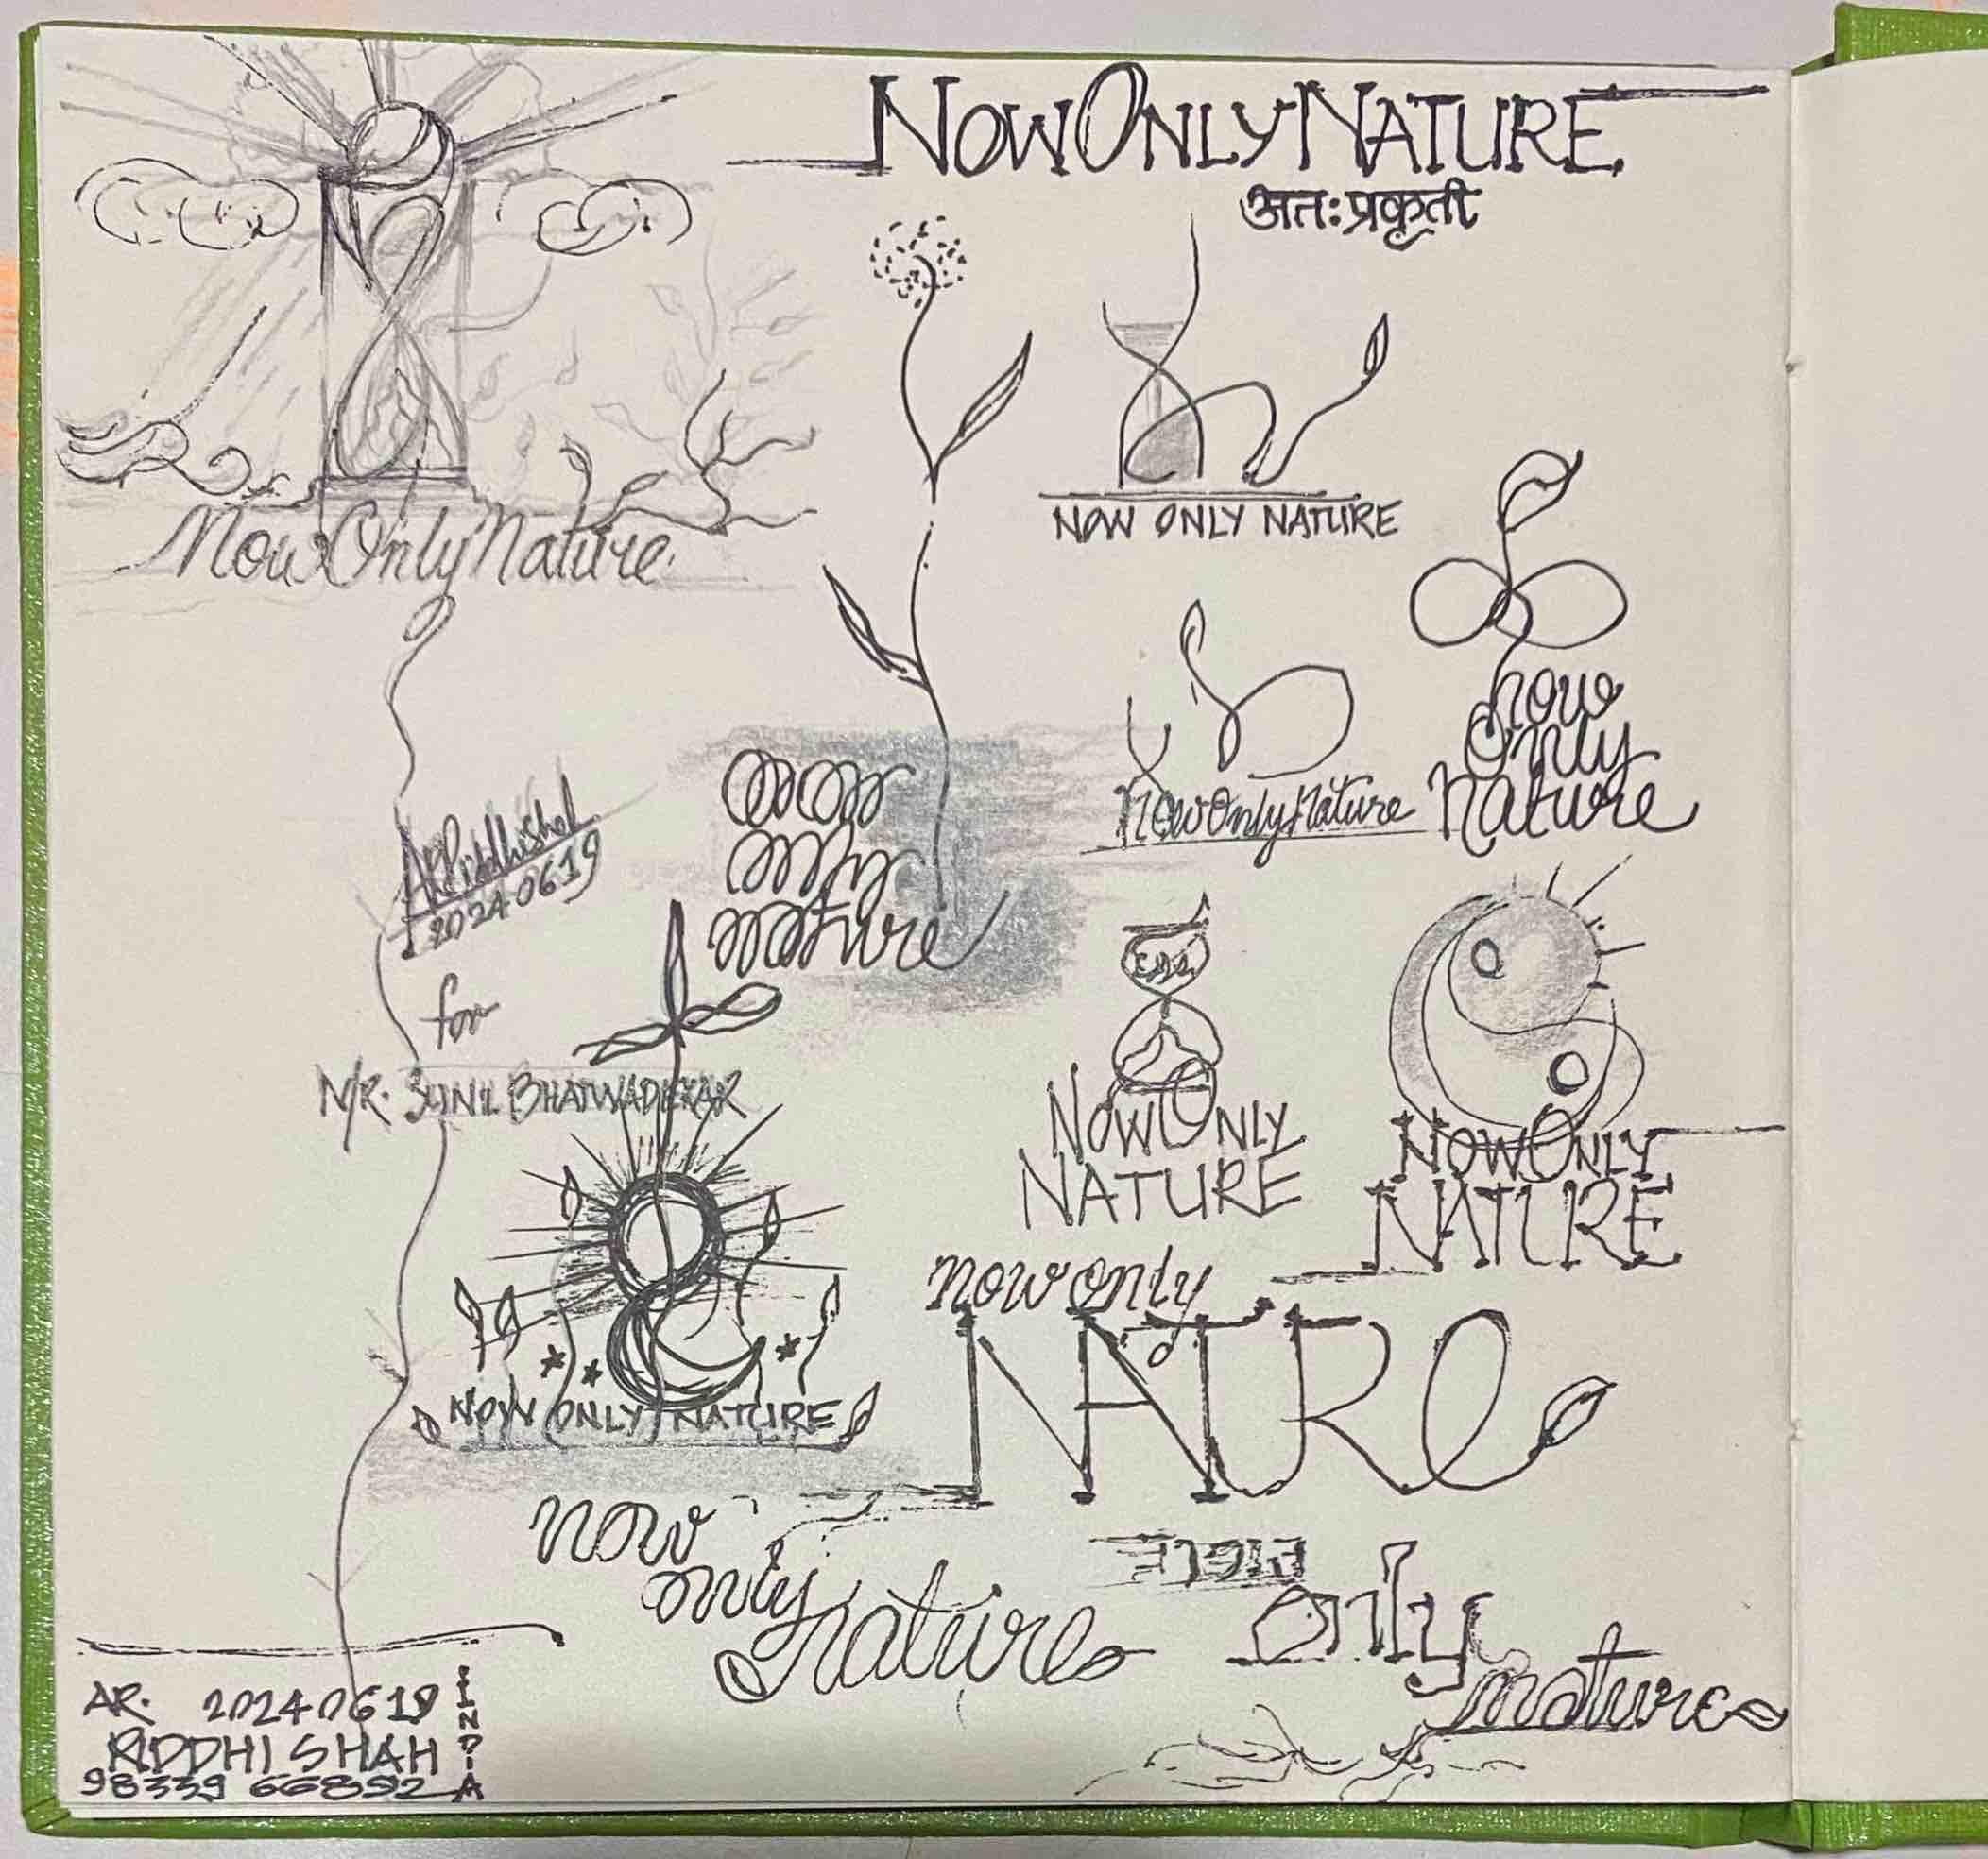 NOWONLYNATURE
अतः प्रकृती
NowOnlyNature
NOW ONLY NATURE
now
only
nature
NowOnlyNature
now
only
nature
ARRiddhishah
20240619
for
MR. SUNIL BHATWADEKAR
NOWONLY
NATURE
NOWONLY
NATURE
NOW ONLY NATURE
now only
NATURe
now
only
nature
only
nature
AR. 20240619
RIDDHI SHAH
98339 66892
INDIA